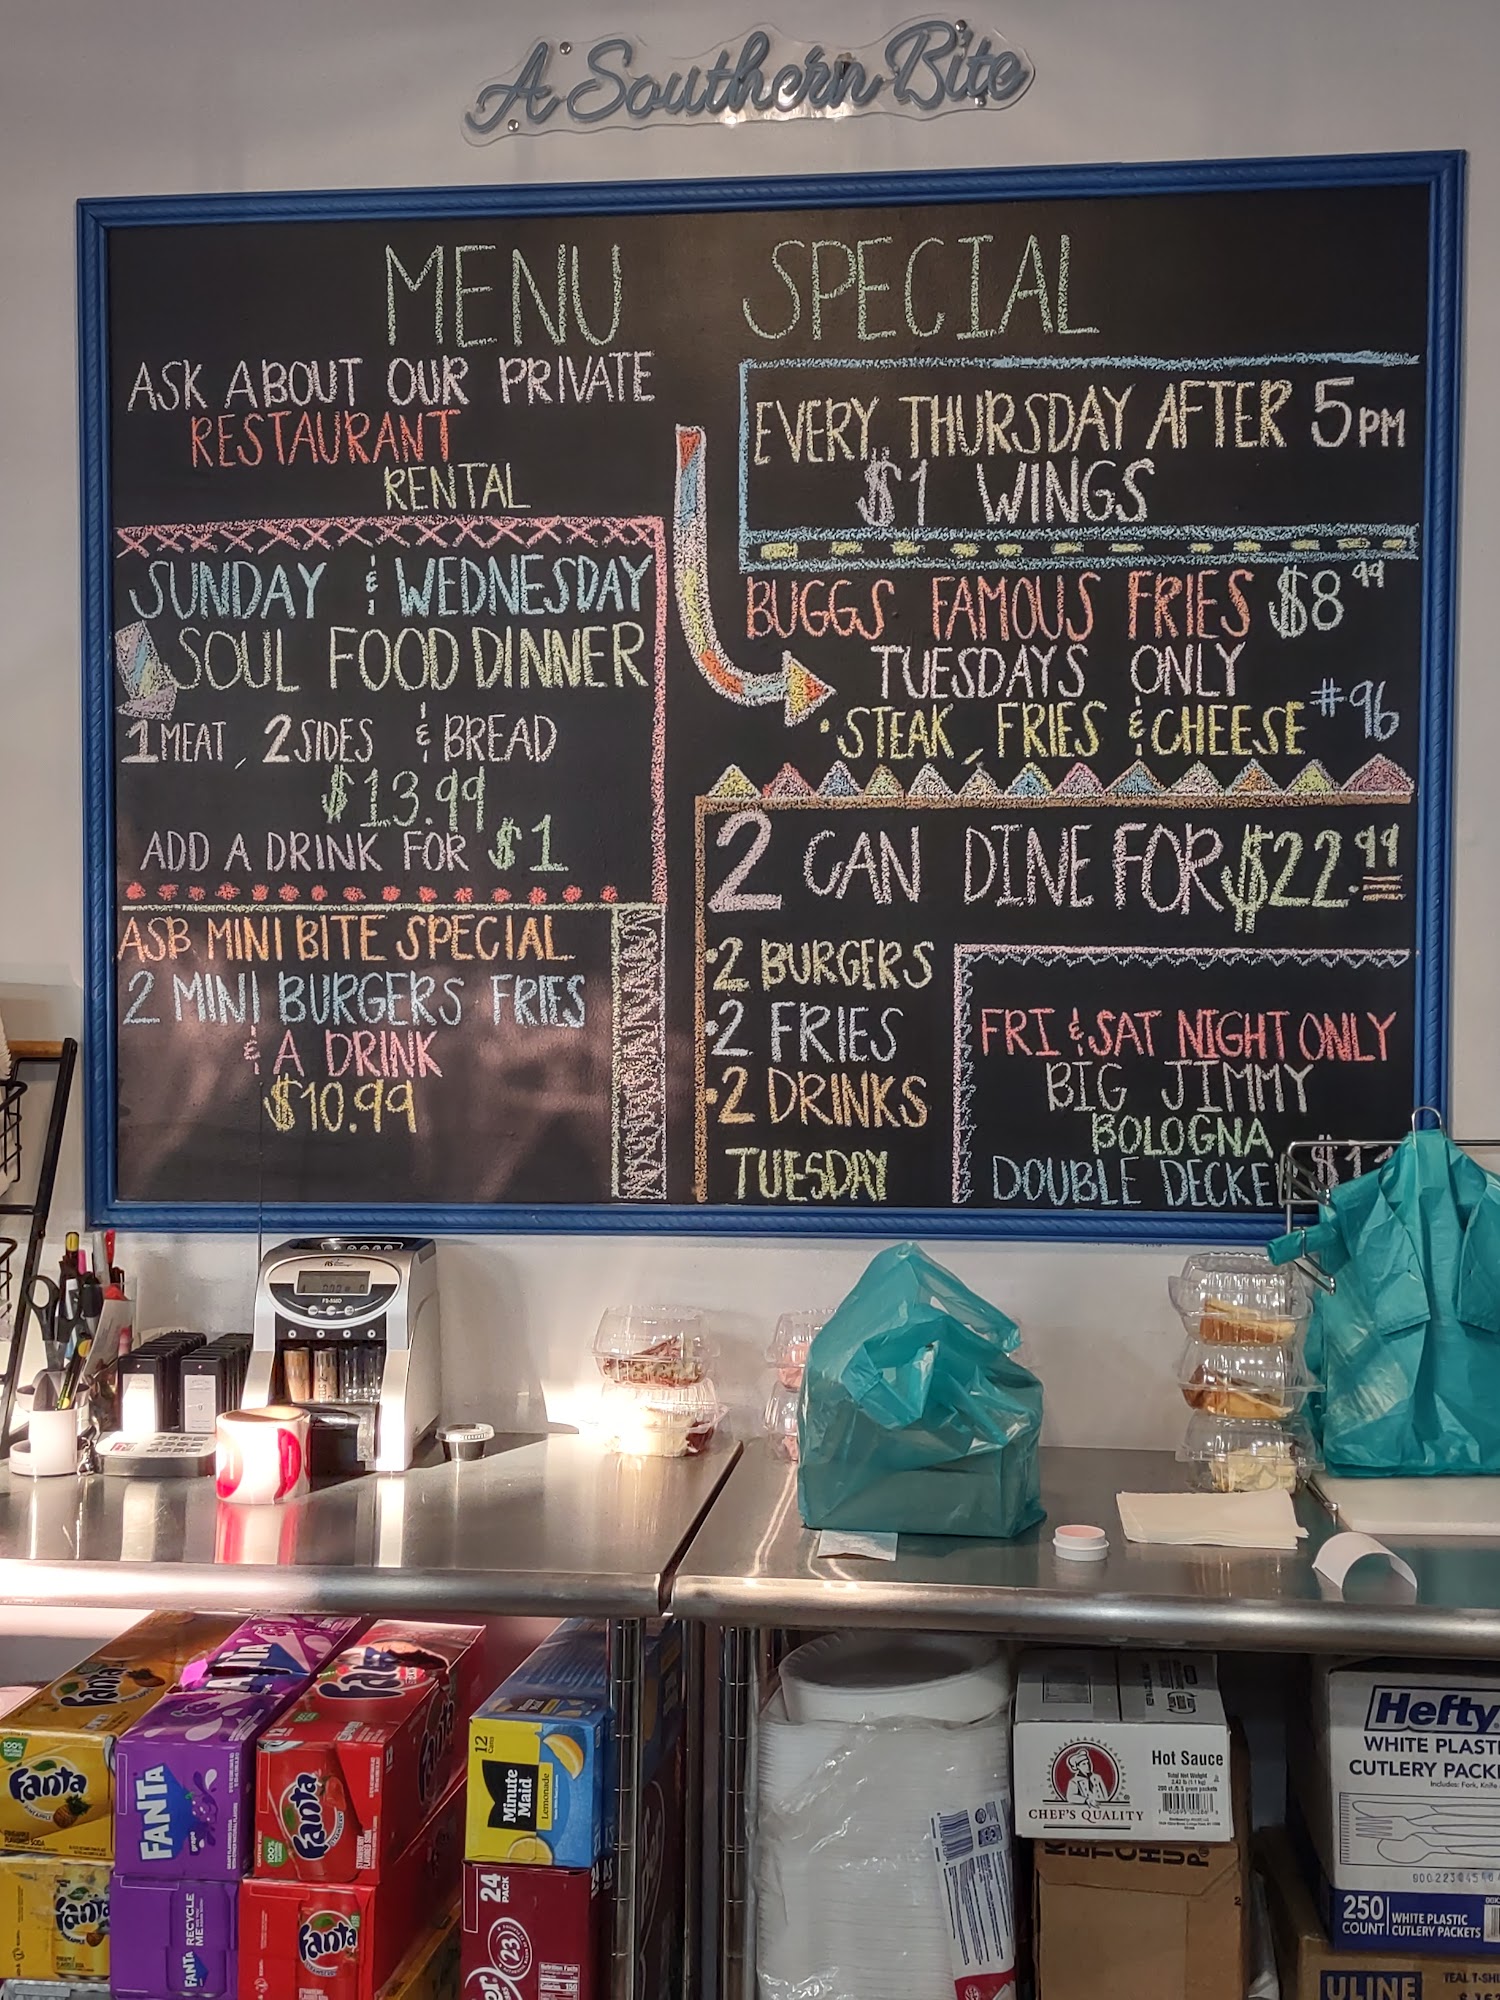 A Southern Bite
MENU SPECIAL
ASK ABOUT OUR PRIVATE
RESTAURANT
RENTAL
SUNDAY & WEDNESDAY
SOUL FOOD DINNER
1 MEAT, 2 SIDES & BREAD
$13.99
ADD A DRINK FOR $1
ASB MINI BITE SPECIAL
2 MINI BURGERS FRIES
& A DRINK
$10.99
EVERY THURSDAY AFTER 5PM
$1 WINGS
BUGGS FAMOUS FRIES $8.99
TUESDAYS ONLY
• STEAK, FRIES & CHEESE #96
2 CAN DINE FOR $22.99
• 2 BURGERS
• 2 FRIES
• 2 DRINKS
TUESDAY
FRI & SAT NIGHT ONLY
BIG JIMMY
BOLOGNA
DOUBLE DECKE
Fanta
PINEAPPLE
FANTA
grape
Fanta
STRAWBERRY
12
Minute
Maid
Lemonade
Fanta
FANTA
RECYCLE
ME
Fanta
24
PACK
23
Hot Sauce
CHEF'S QUALITY
KETCHUP
Hefty
WHITE PLAST
CUTLERY PACK
250
COUNT
WHITE PLASTIC
CUTLERY PACKETS
ULINE
TEAL T-SH